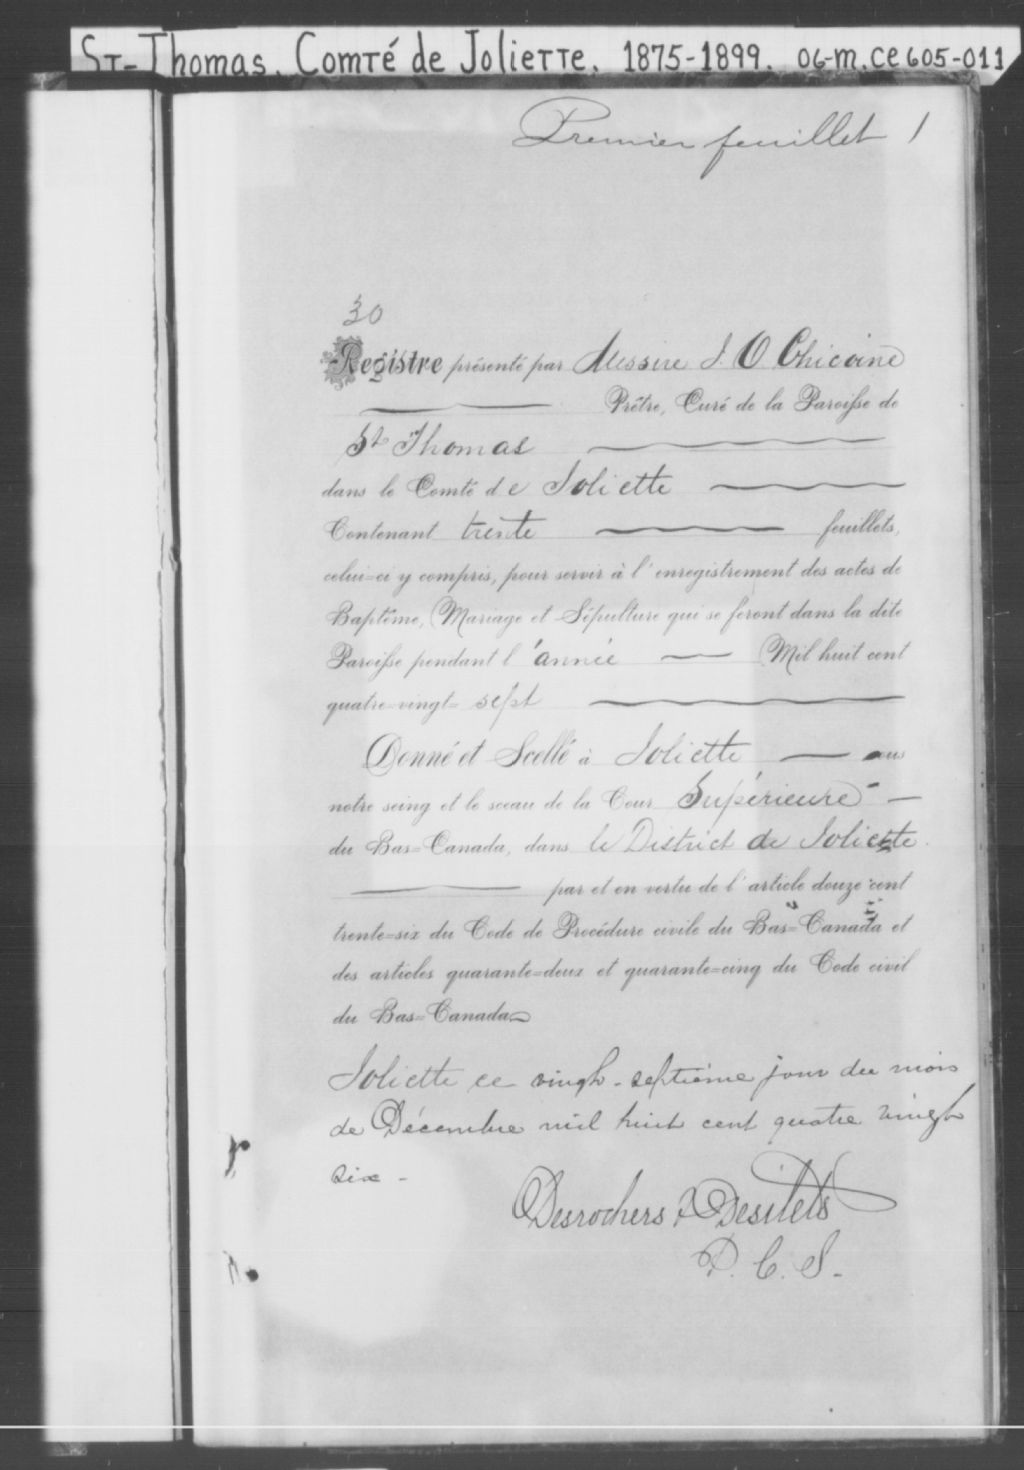 St-Thomas. Comté de Joliette. 1875-1899. 06-M.CE605-011
Premier feuillet 1
30
Registre présenté par Messire J. O Chicoine
Prêtre, Curé de la Paroisse de
St Thomas
dans le Comté de Joliette
Contenant trente feuillets,
celui=ci y compris, pour servir à l'enregistrement des actes de
Baptême, Mariage et Sépulture qui se feront dans la dite
Paroisse pendant l'année Mil huit cent
quatre=vingt= sept
Donné et Scellé à Joliette sous
notre seing et le sceau de la Cour Supérieure
du Bas=Canada, dans le District de Joliette.
par et en vertu de l'article douze cent
trente=six du Code de Procédure civile du Bas=Canada et
des articles quarante=deux et quarante=cinq du Code civil
du Bas=Canada
Joliette ce vingt-septième jour du mois
de Décembre mil huit cent quatre vingt
six -
Desrochers & Desilets
P. C. S.